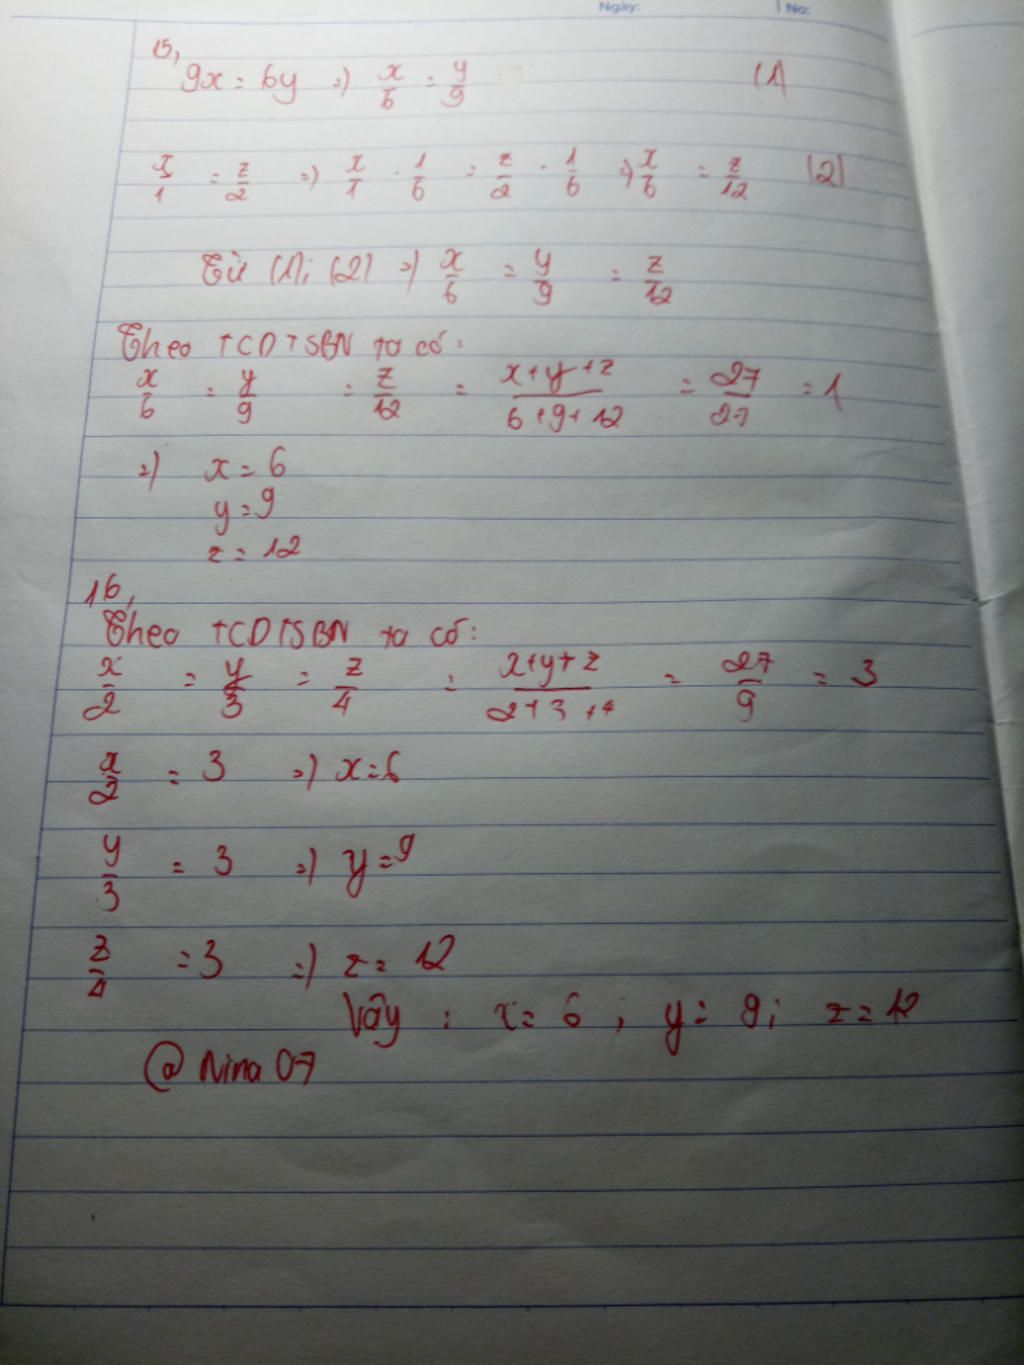 Ngày: No:
15,
9x = 6y => x/6 = y/9 (1)
x/1 = z/2 => x/1 . 1/6 = z/2 . 1/6 => x/6 = z/12 (2)
Từ (1); (2) => x/6 = y/9 = z/12
Theo TCDTSBN ta có:
x/6 = y/9 = z/12 = x+y+z/6+9+12 = 27/27 = 1
=> x = 6
y = 9
z = 12
16,
Theo TCDTSBN ta có:
x/2 = y/3 = z/4 = x+y+z/2+3+4 = 27/9 = 3
x/2 = 3 => x = 6
y/3 = 3 => y = 9
z/4 = 3 => z = 12
Vậy : x = 6 ; y = 9 ; z = 12
@ Nina 07